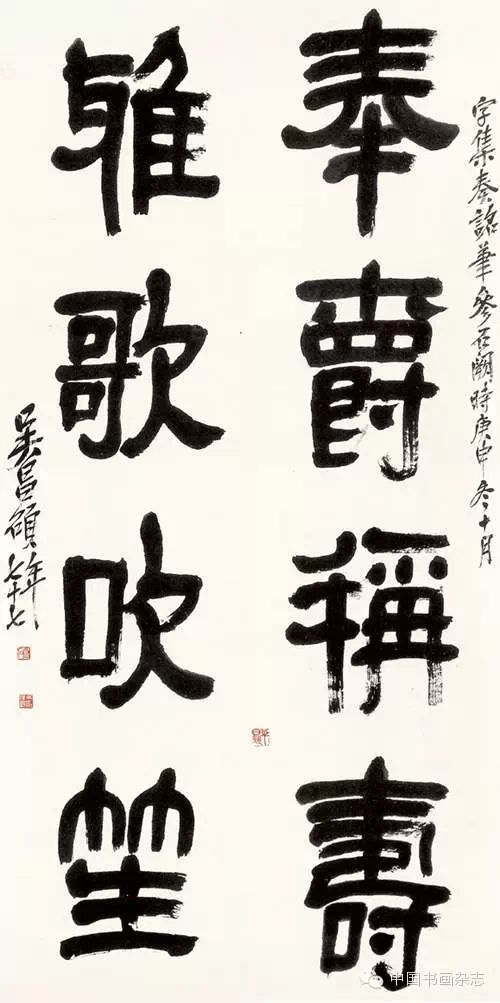 字集秦詔筆參石闕時庚申冬十月
奉爵稱壽
雅歌吹笙
吳昌碩年七十七
中国书画杂志